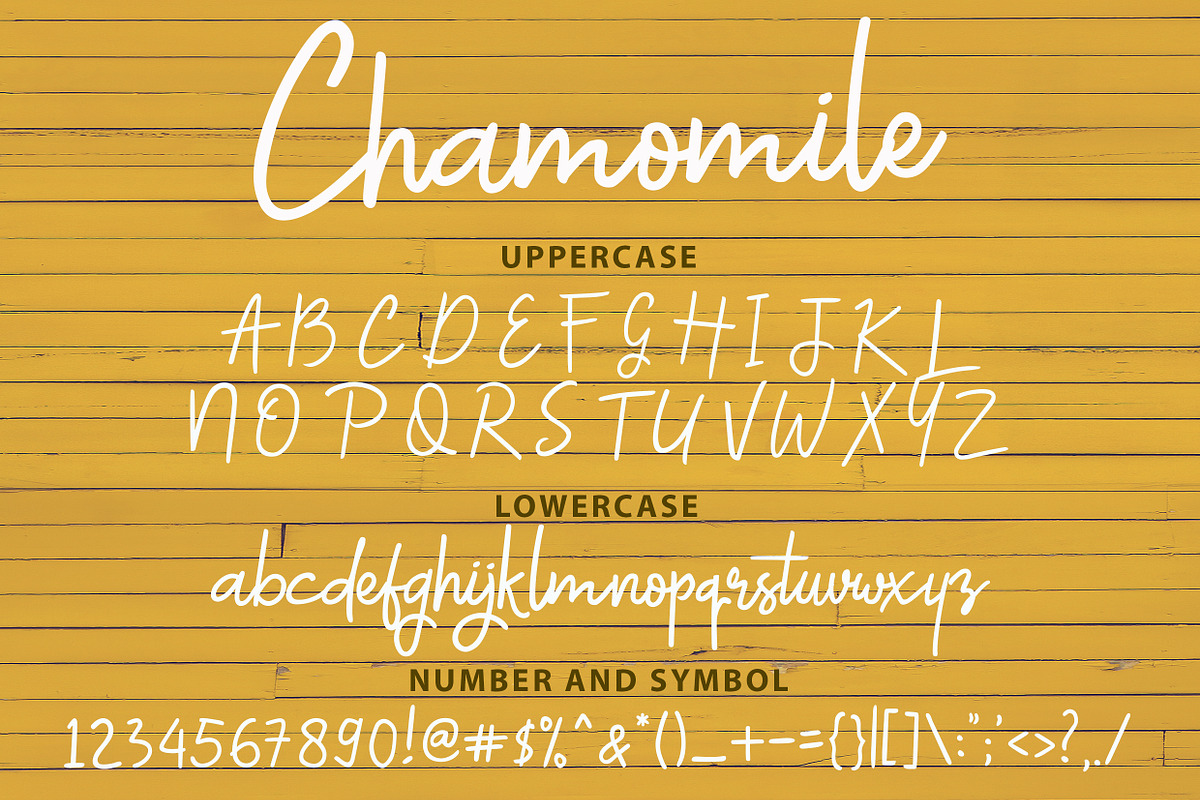 Chamomile
UPPERCASE
A B C D E F G H I J K L
N O P Q R S T U V W X Y Z
LOWERCASE
abcdefghijklmnopqrstuvwxyz
NUMBER AND SYMBOL
1234567890!@#$%^&*()_+-={}|[]\:";'<>?,./